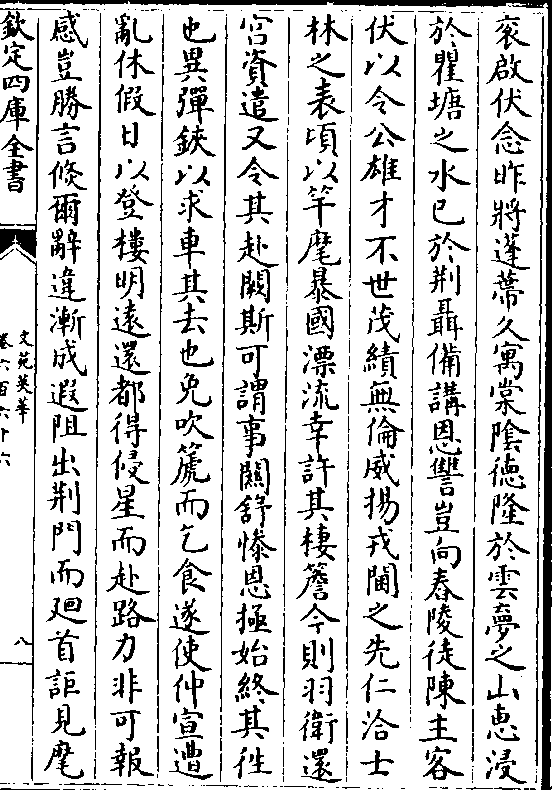 衮啟伏念昨將蓬蔕久寓棠隂德隆於雲夢之山恵浸
於瞿塘之水已於荆聶備講恩讐豈向舂陵徒陳主客
伏以令公雄才不世茂績無倫威揚戎閫之先仁洽士
林之表頃以竿麾暴國漂流幸許其棲簷今則羽衛還
宫資遣又令其赴闕斯可謂事闗舒慘恩極始終其徃
也異彈鋏以求車其去也免吹篪而乞食遂使仲宣遭
亂休假日以登樓明遠還都得侵星而赴路力非可報
感豈勝言倐爾辭違漸成遐阻出荆門而廻首詎見麾
欽定四庫全書
文苑英華
卷六百六十六
八